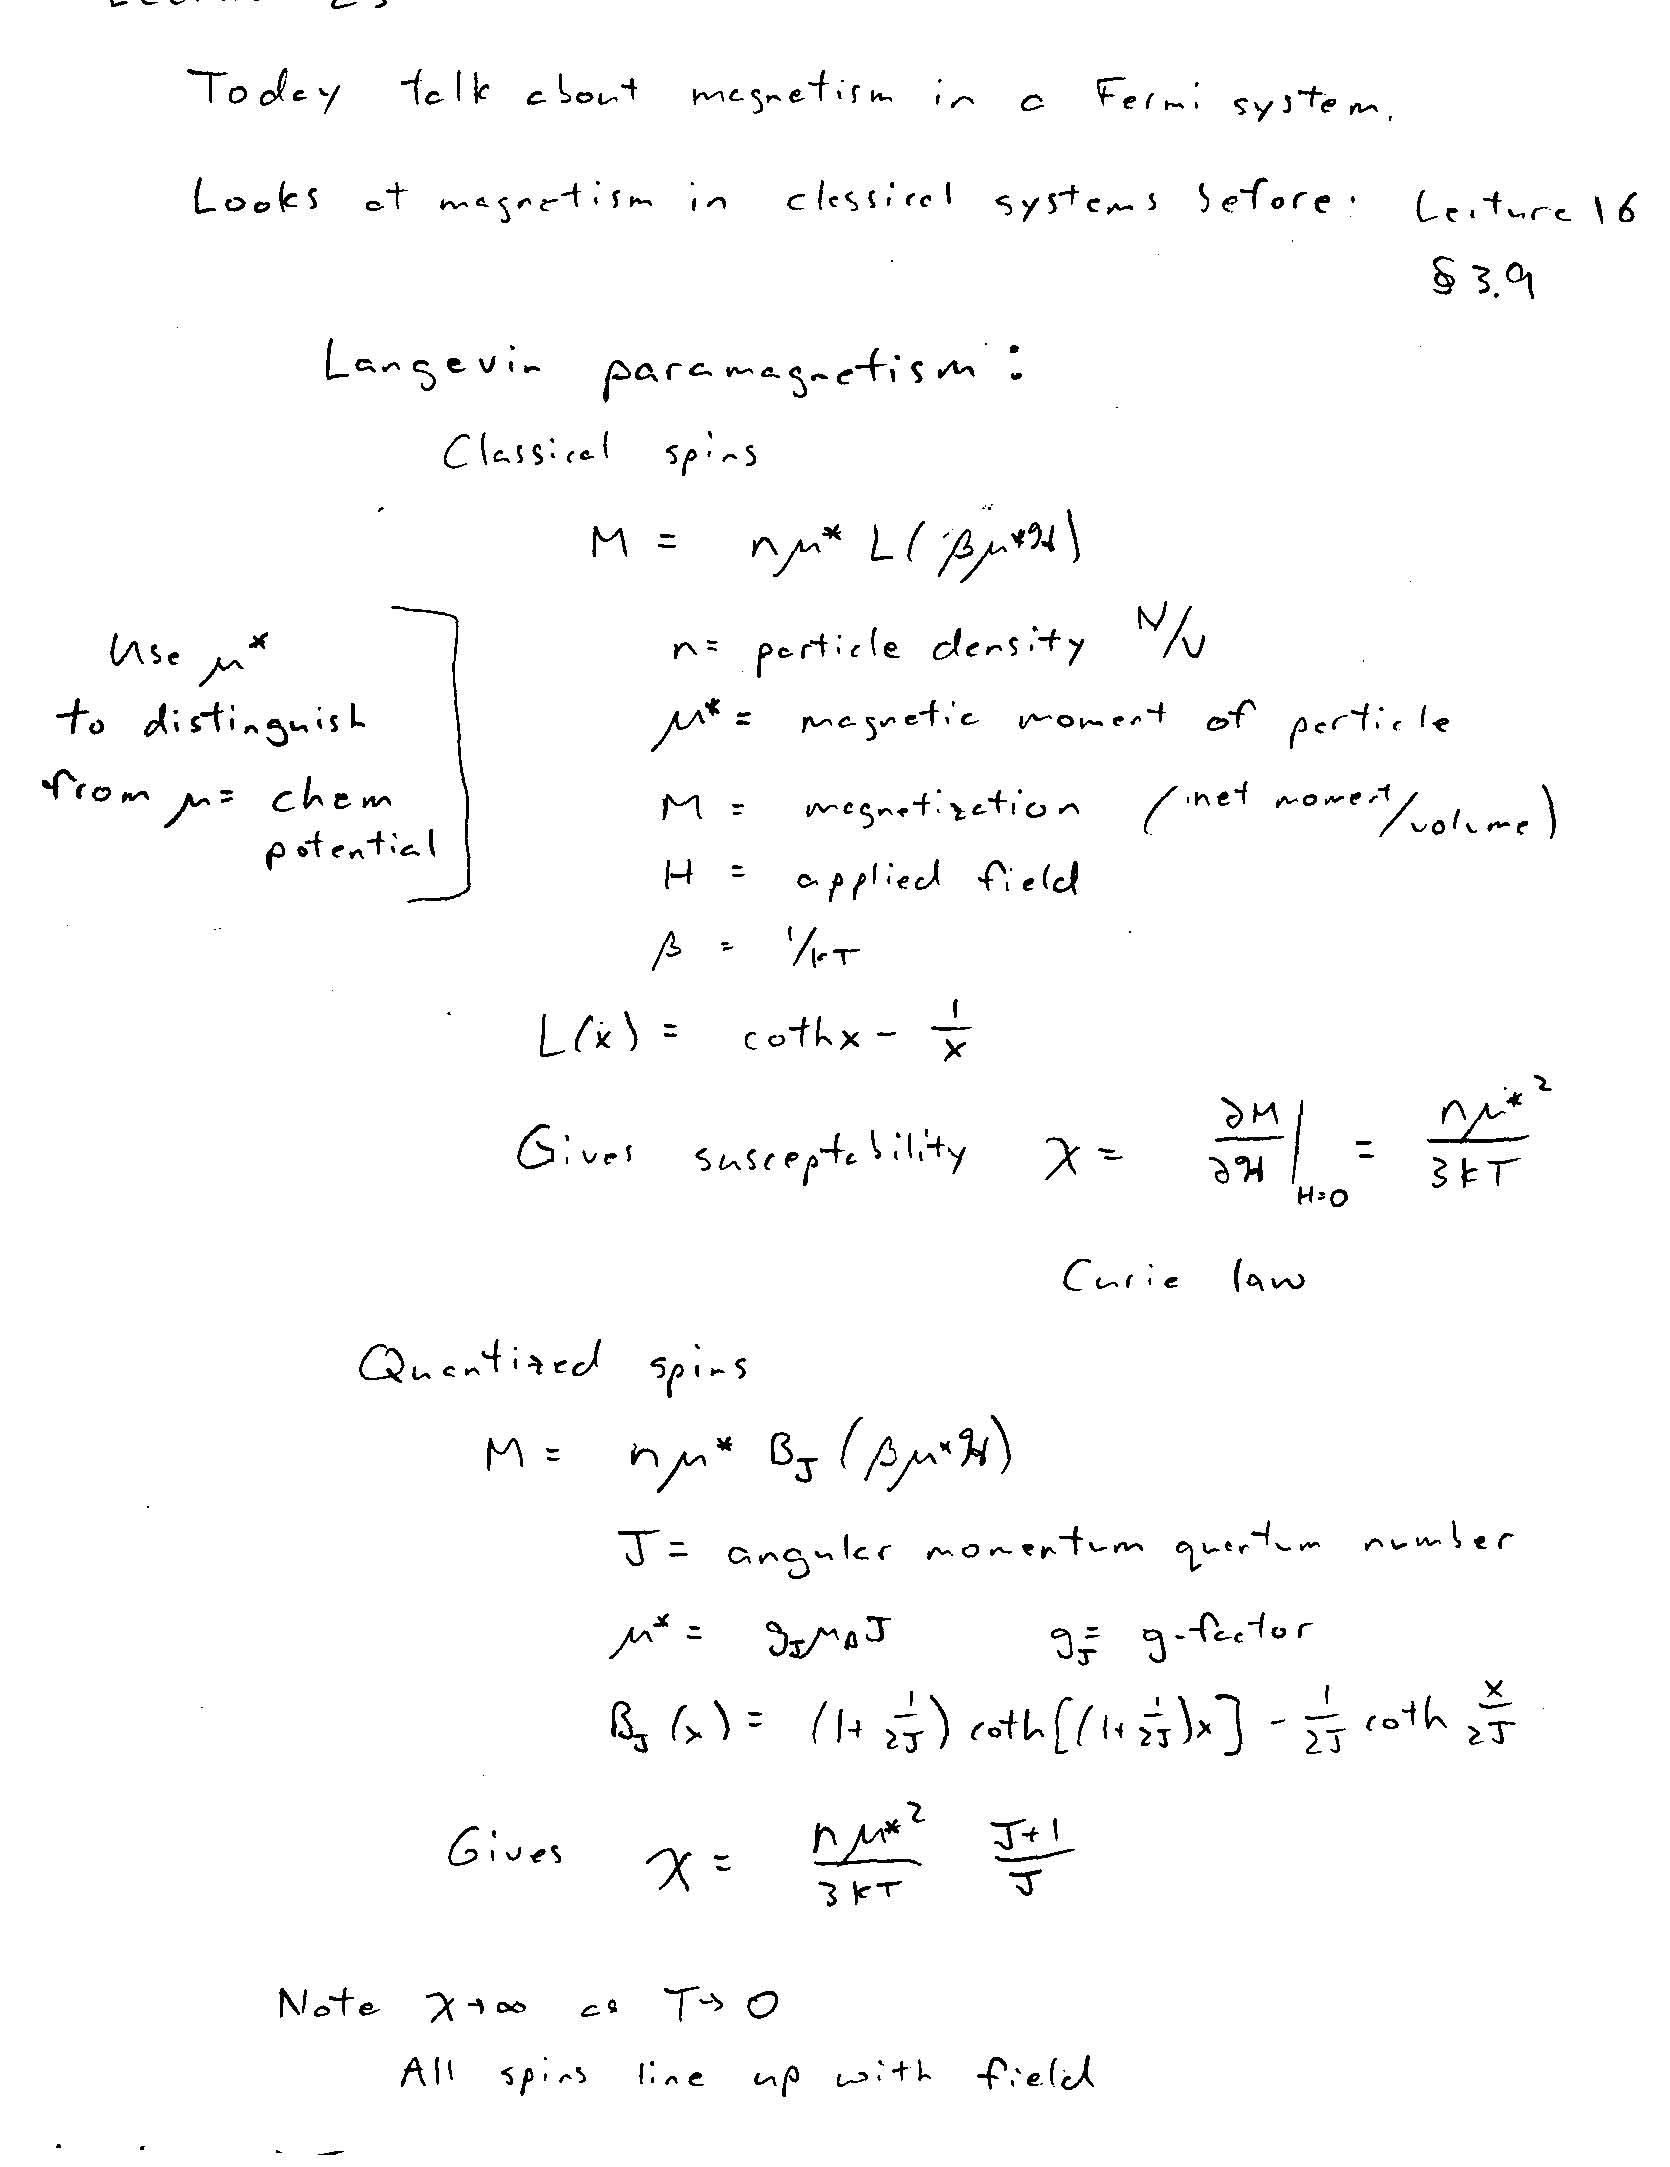 Today talk about magnetism in a Fermi system.
Looks at magnetism in classical systems before. Lecture 16
§ 3.9
Langevin paramagnetism:
Classical spins
M = nμ* L(βμ*ℋ)
Use μ*
to distinguish
from μ= chem
potential
n= particle density N/V
μ* = magnetic moment of particle
M = magnetization (net moment/volume)
H = applied field
β = 1/kT
L(x) = coth x - 1/x
Gives susceptability χ = ∂M/∂ℋ|H=0 = nμ*²/3kT
Curie law
Quantized spins
M = nμ* B_J (βμ*ℋ)
J = angular momentum quantum number
μ* = g_J μ_B J g_J = g-factor
B_J (x) = (1+ 1/2J) coth[(1+ 1/2J)x] - 1/2J coth x/2J
Gives χ = nμ*²/3kT J+1/J
Note χ→∞ as T→0
All spins line up with field